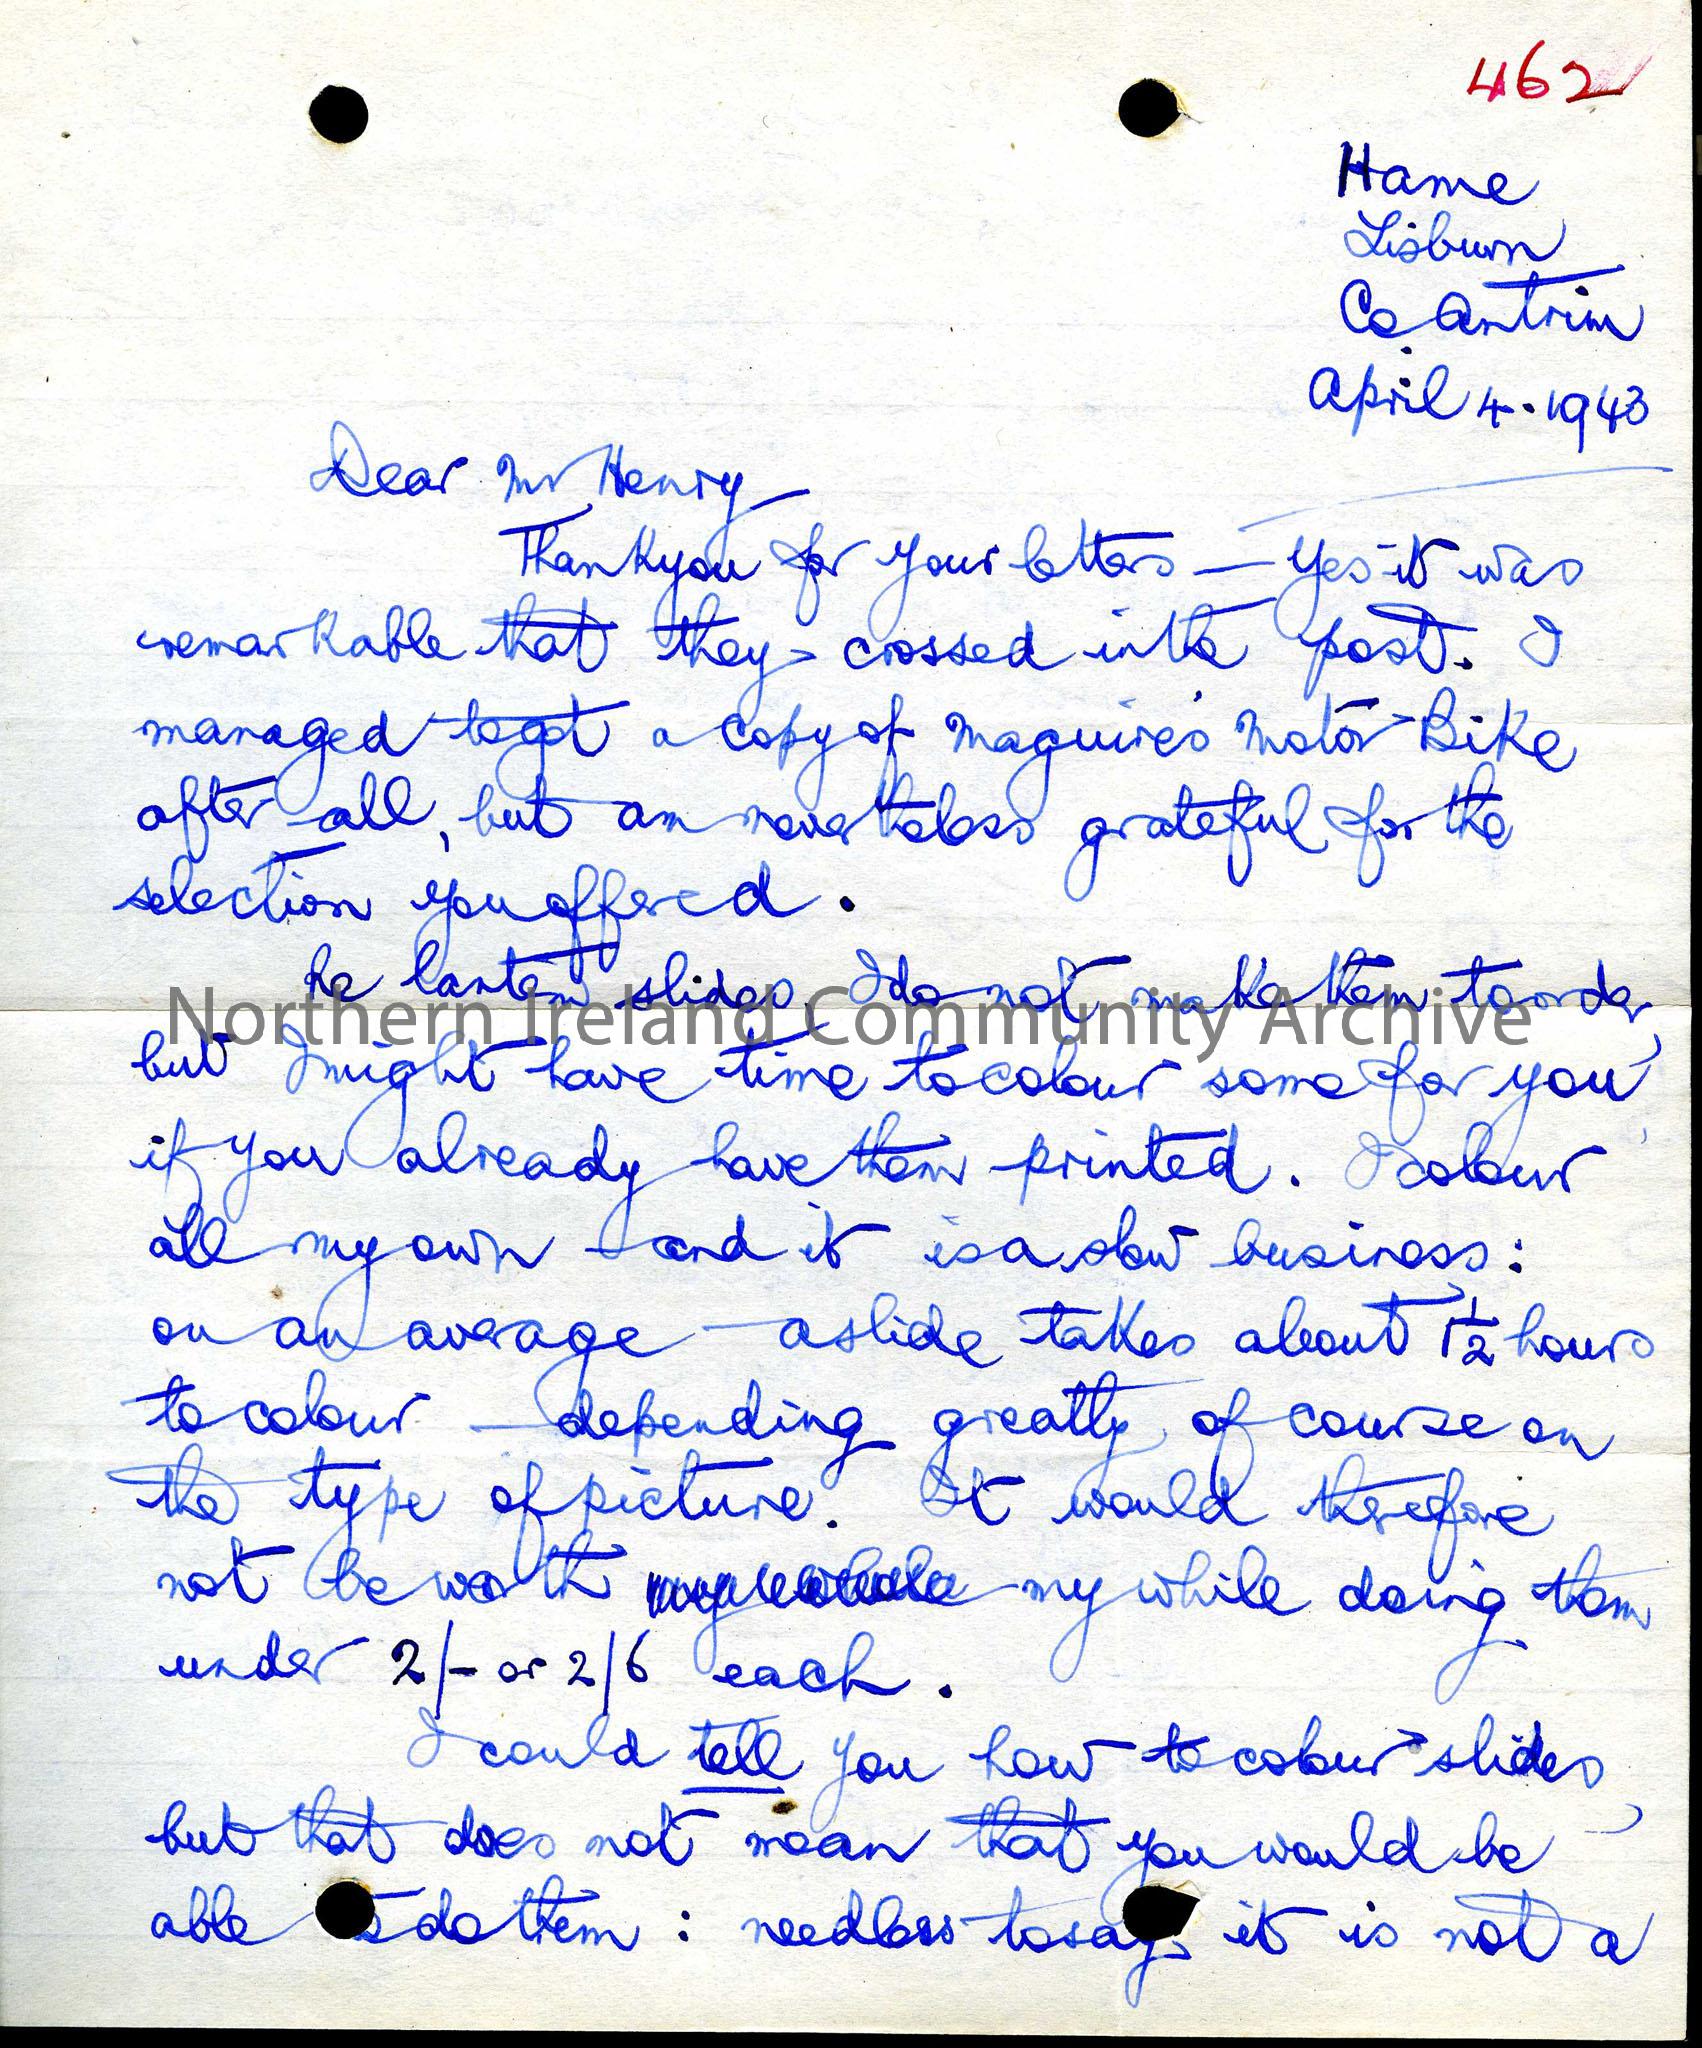 462
Hame
Lisburn
Co Antrim
April 4. 1943
Dear Mr Henry
Thank you for your letters — Yes it was
remarkable that they crossed in the post. I
managed to get a copy of Maguire's Motor Bike
after all, but am nevertheless grateful for the
selection you offered.
Re lantern slides. I do not make them to order,
Northern Ireland Community Archive
but I might have time to colour some for you,
if you already have them printed. I colour
all my own – and it is a slow business:
on an average – a slide takes about 1½ hours
to colour – depending greatly of course on
the type of picture. It would therefore
not be worth my while doing them
under 2/- or 2/6 each.
I could tell you how to colour slides,
but that does not mean that you would be
able to do them: needless to say, it is not a